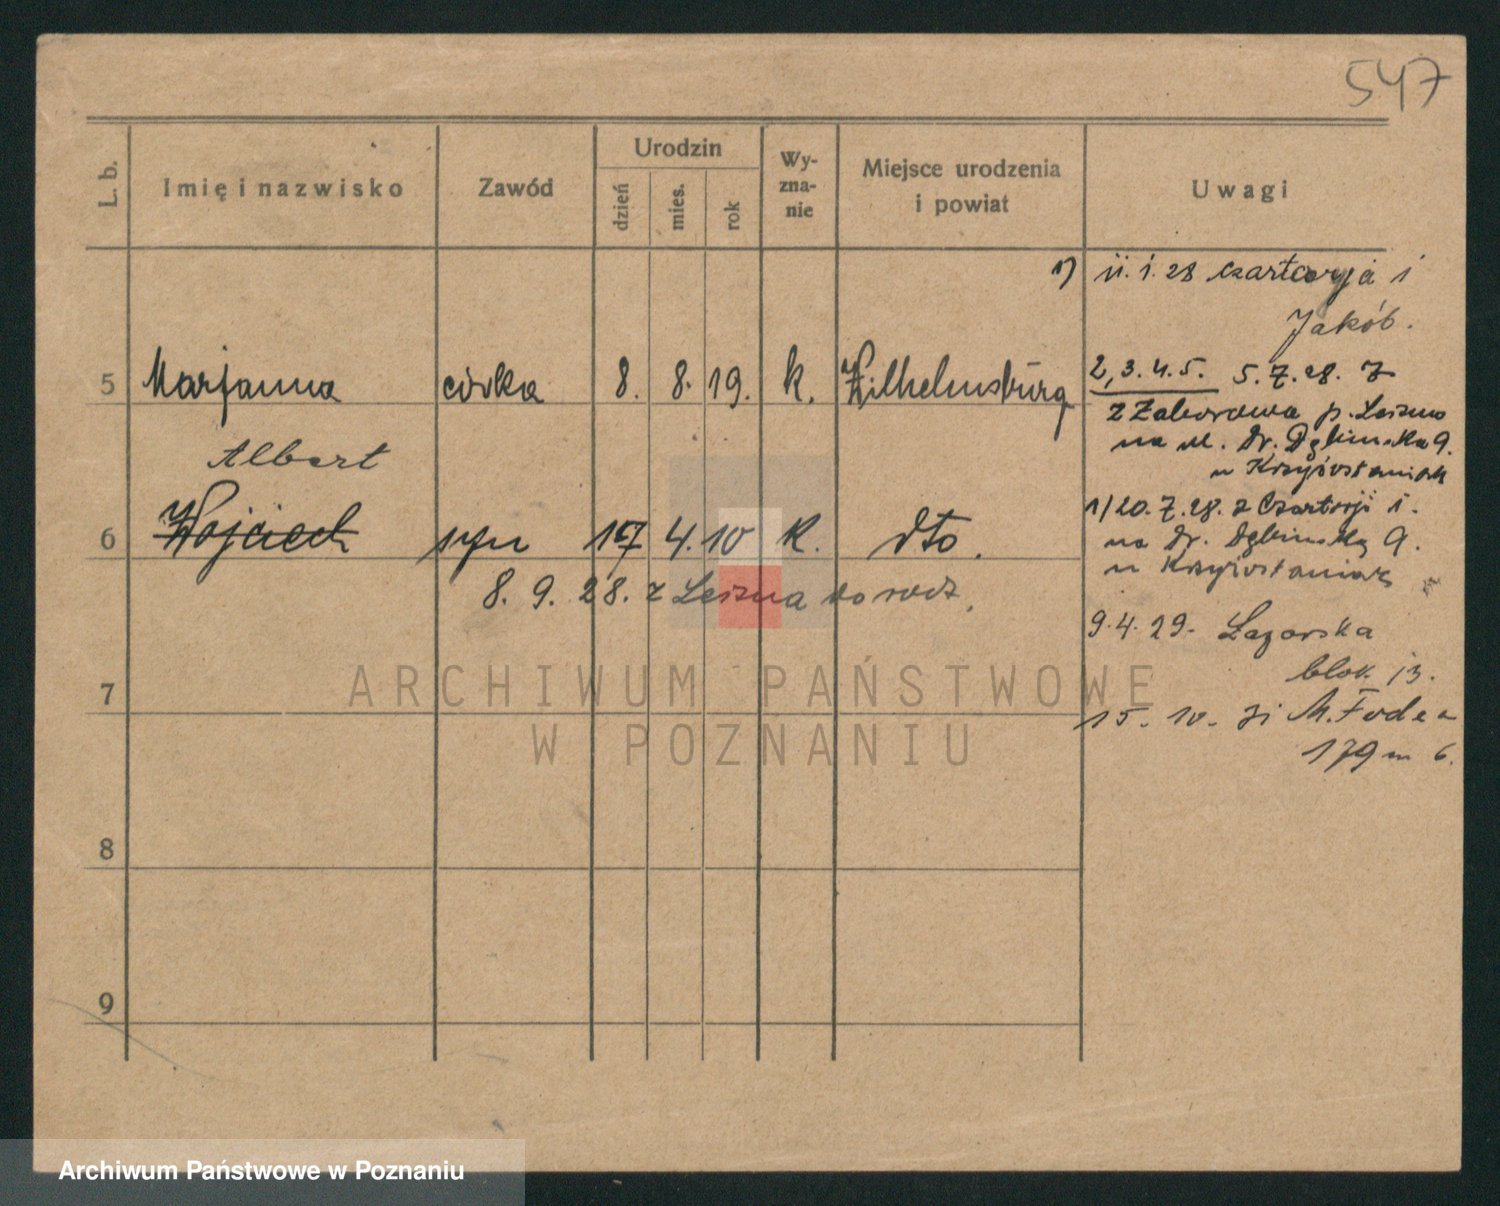 547
L. b.
Imię i nazwisko
Zawód
Urodzin
dzień
mies.
rok
Wy-
zna-
nie
Miejsce urodzenia
i powiat
Uwagi
1) 11. 1. 28 Czartorja 1
Jakób.
5 Marjanna córka 8. 8. 19. k. Wilhelmsburg
2, 3. 4. 5. 5. 7. 28.
z Zaborowa p. Leszno
na ul. Dr. Dębińska 9.
u Krzyżostaniak
Albert
6 Wojciech syn 17 4. 10 k. dto.
1/20. 7. 28. z Czartorji 1.
na Dr. Dębińską 9.
u Krzyżostaniak
8. 9. 28. z Leszna do rodz.
9. 4. 29. Łazarska
blok 13.
7
15. 10. 31 M. Focha
179 m 6.
8
9
ARCHIWUM PAŃSTWOWE
W POZNANIU
Archiwum Państwowe w Poznaniu